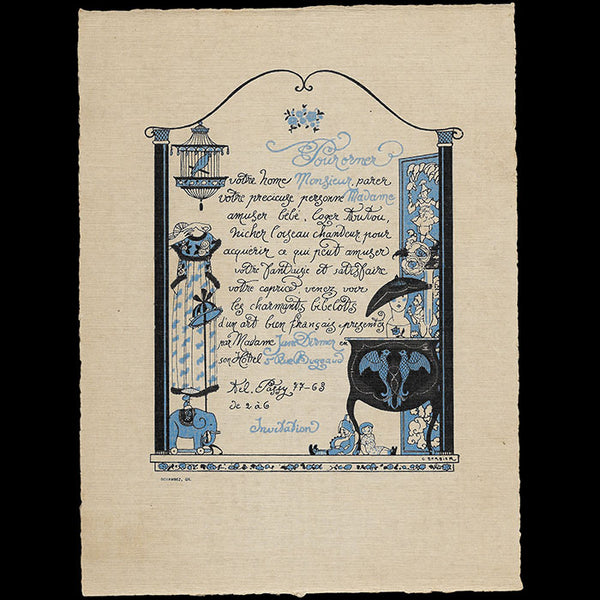 Pour orner
votre home Monsieur, parer
votre precieuse personne Madame
amuser bébé, loger Toutou,
nicher l'oiseau chanteur pour
acquérir ce qui peut amuser
votre fantaisie et satisfaire
votre caprice venez voir
les charmants bibelots
d'un art bien français, presentés
par Madame Jane Dermer en
son Hôtel 5 Rue Bugeaud
Tel. Passy 77-63
de 2 à 6
Invitation
G. BARBIER
DEVAMBEZ, GR.